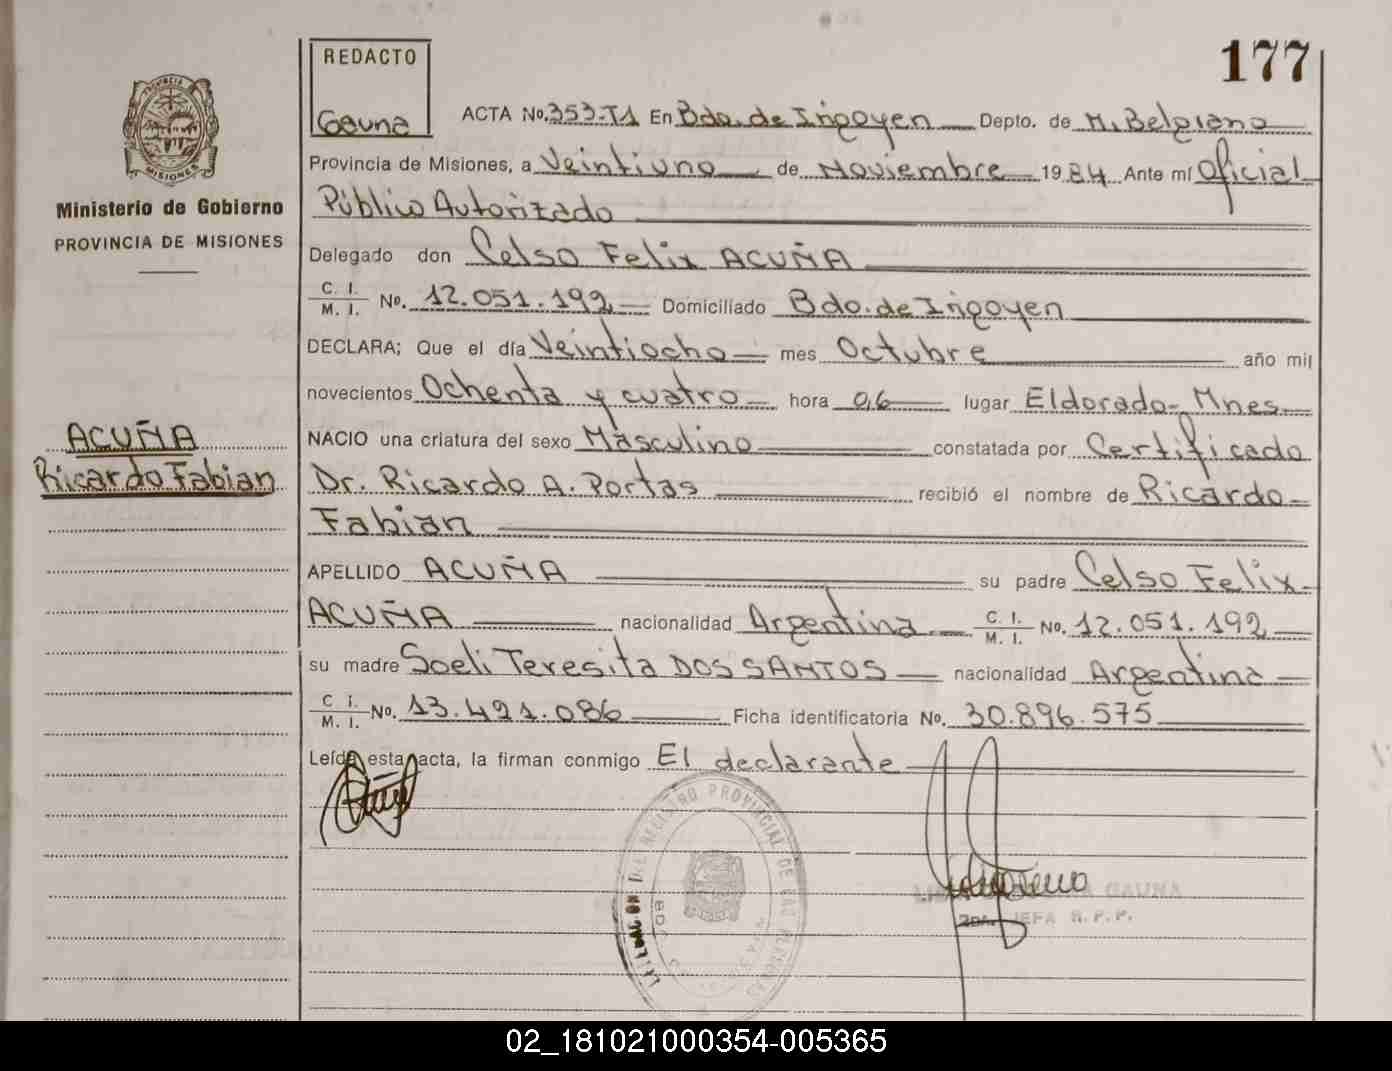 177
REDACTO
Gauna
PROVINCIA
MISIONES
Ministerio de Gobierno
PROVINCIA DE MISIONES
ACTA No. 353-T1 En Bdo. de Irigoyen Depto. de M. Belgrano
Provincia de Misiones, a Veintiuno de Noviembre 1984 Ante mí Oficial
Público Autorizado
Delegado don Celso Felix ACUÑA
C. I. M. I. No. 12.051.192 Domiciliado Bdo. de Irigoyen
DECLARA; Que el día Veintiocho mes Octubre año mil
novecientos Ochenta y cuatro hora 06 lugar Eldorado-Mnes
ACUÑA
Ricardo Fabian
NACIO una criatura del sexo Masculino constatada por Certificado
Dr. Ricardo A. Portas recibió el nombre de Ricardo
Fabian
APELLIDO ACUÑA su padre Celso Felix
ACUÑA nacionalidad Argentina C. I. M. I. No. 12.051.192
su madre Soeli Teresita DOS SANTOS nacionalidad Argentina
C. I. M. I. No. 13.421.086 Ficha identificatoria No. 30.896.575
Leída esta acta, la firman conmigo El declarante
DEL REGISTRO PROVINCIAL DE LAS PERSONAS
GAUNA
2DA. JEFA R.P.P.
02_181021000354-005365